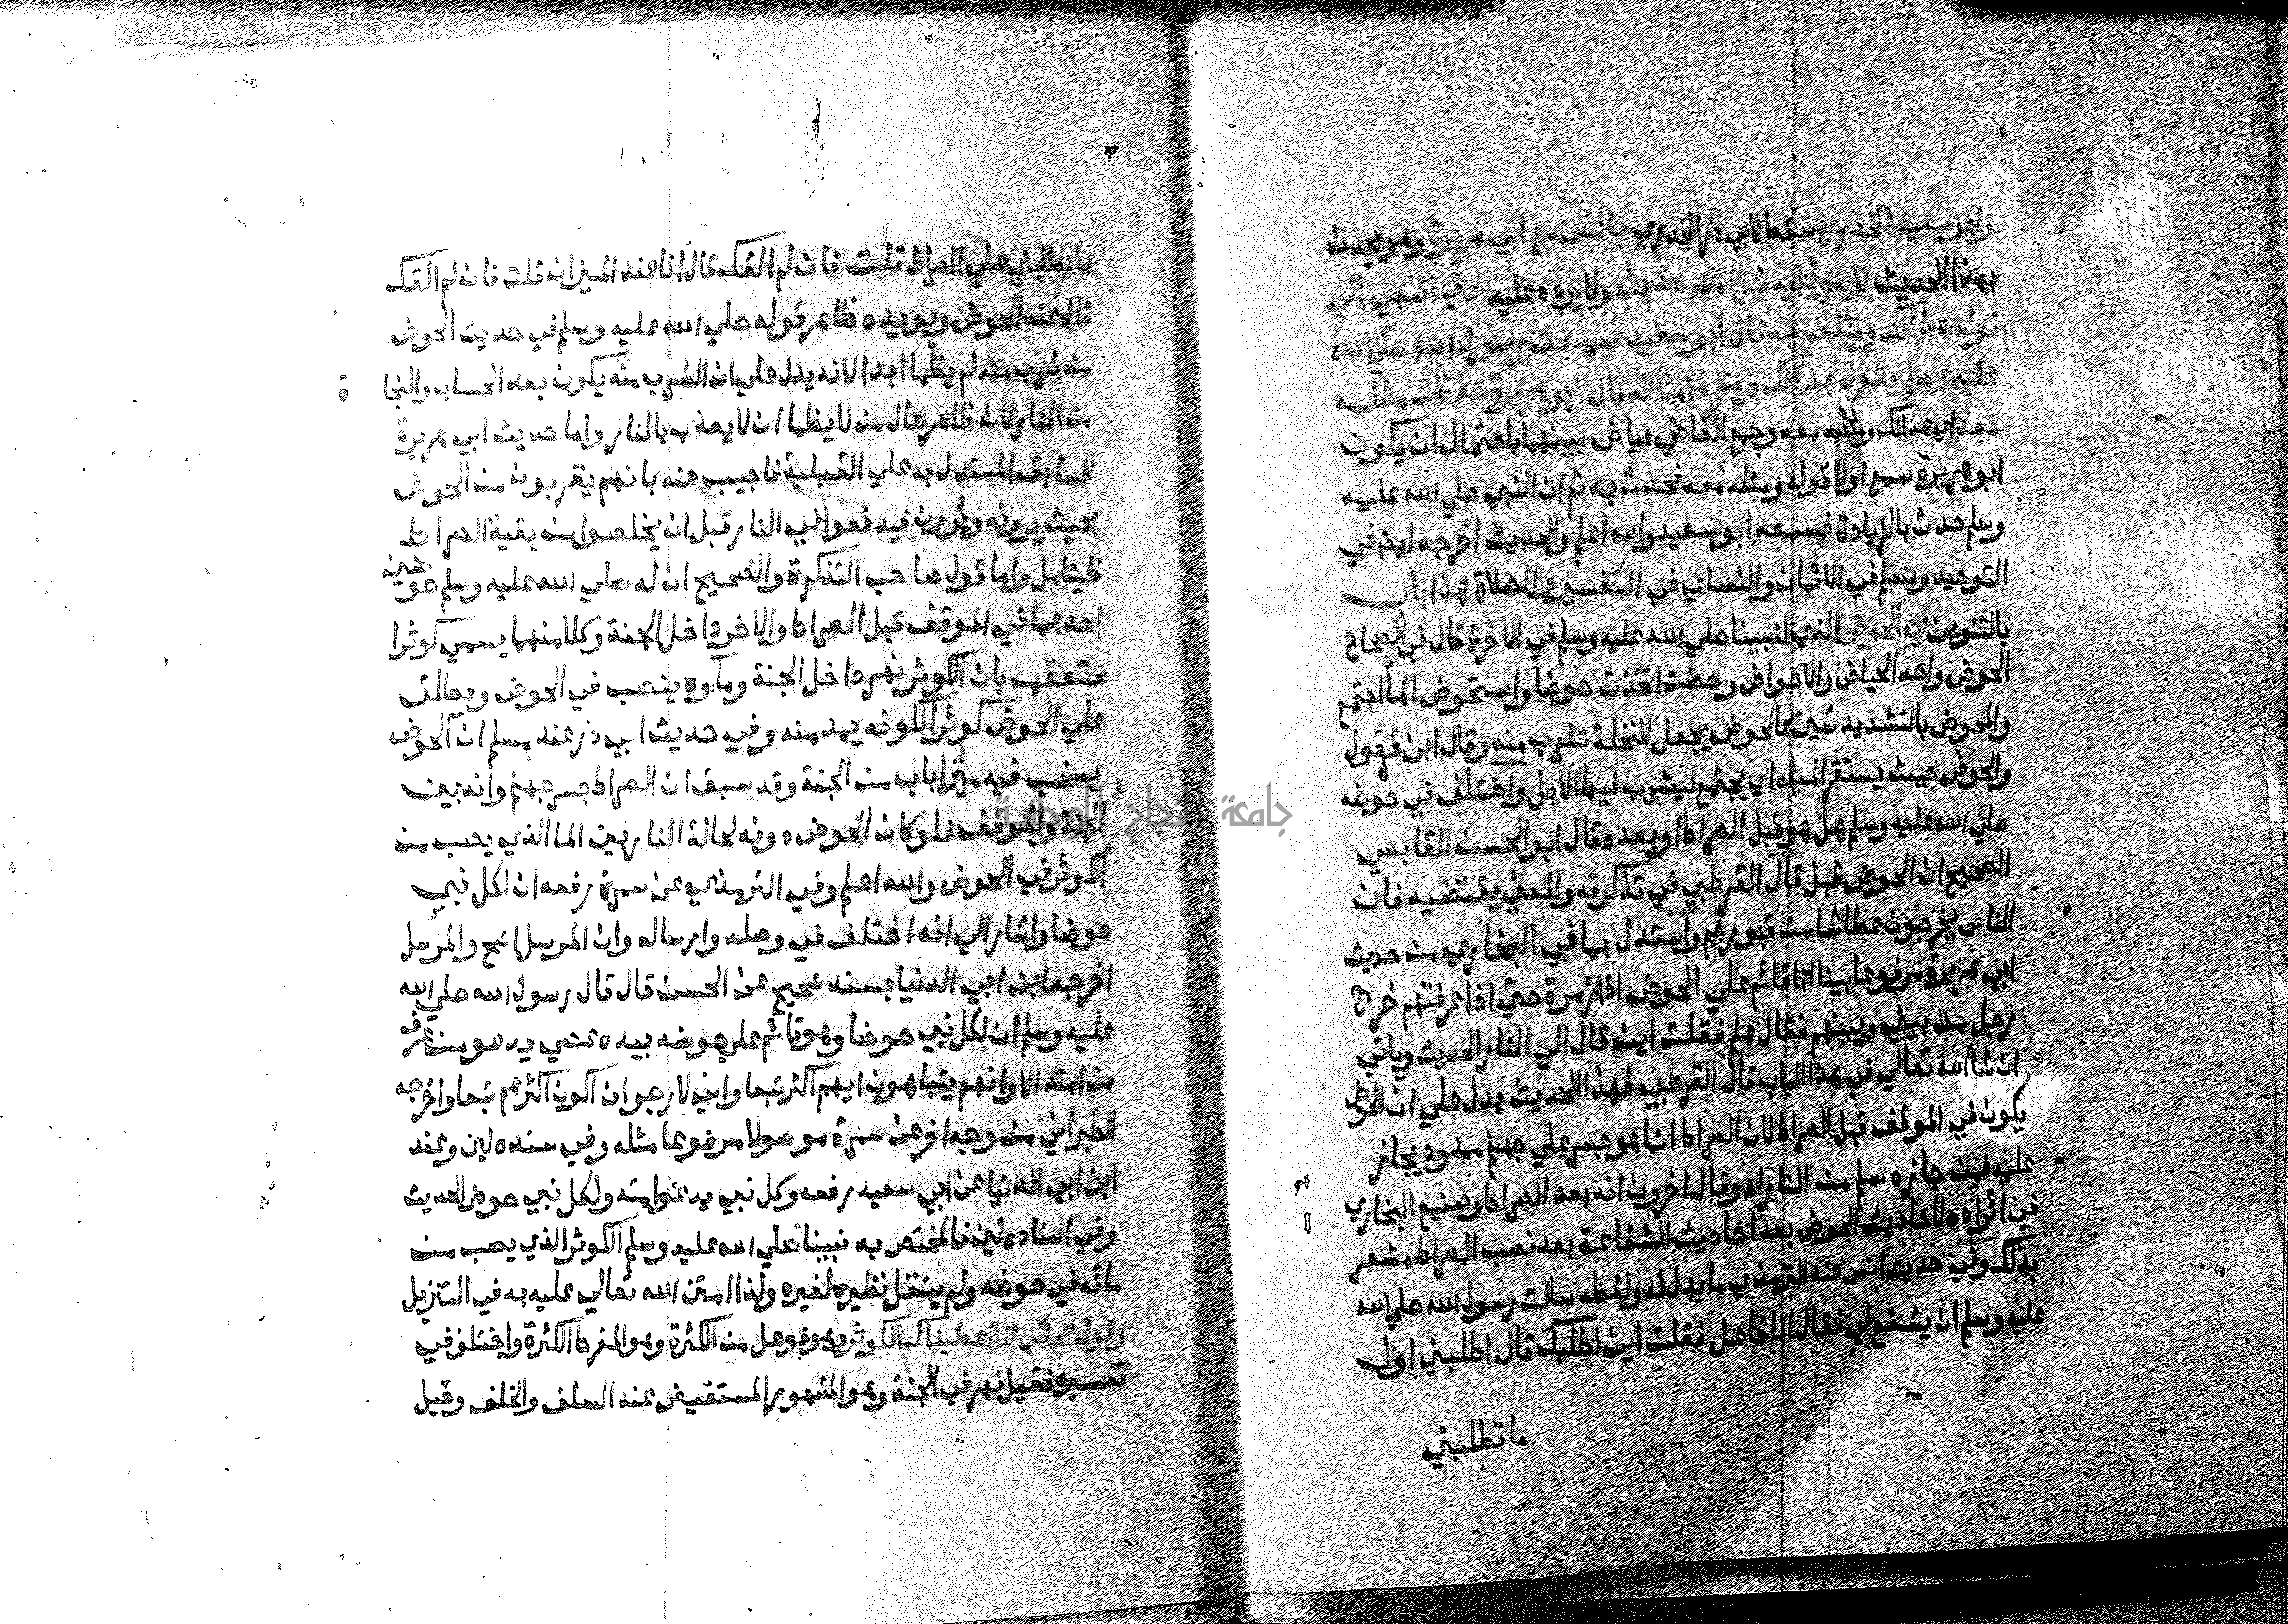 وابو سعيد الخدري سقط لابي ذر الخدري جالس مع ابي هريرة وهو يحدث
بهذا الحديث لا يغير عليه شيا من حديثه ولا يرده عليه حتي انتهي الي
قوله هذا لك ومثله معه قال ابو سعيد سمعت رسول الله صلي الله
عليه وسلم يقول هذا لك وعشرة امثاله قال ابو هريرة حفظت مثله
معه اي هذا لك ومثله معه وجمع القاضي عياض بينهما باحتمال ان يكون
ابو هريرة سمع اولا قوله ومثله معه فحدث به ثم ان النبي صلي الله عليه
وسلم حدث بالزيادة فسمعه ابو سعيد والله اعلم والحديث اخرجه ايضا في
التوحيد ومسلم في الايمان والنساي في التفسير والصلاة هذا باب
بالتنوين في الحوض الذي لنبينا صلي الله عليه وسلم في الاخرة قال في الصحاح
الحوض واحد الحياض والاحواض وحضت اتخذت حوضا واستحوض الما اجتمع
والمحوض بالتشديد شيئ كالحوض يجعل للنخلة تشرب منه وقال ابن قرقول
والحوض حيث يستقر المياه اي يجتمع ليشرب فيها الابل واختلف في حوضه
صلي الله عليه وسلم هل هو قبل الصراط او بعده قال ابو الحسن القابسي
الصحيح ان الحوض قبل قال القرطبي في تذكرته والمعني يقتضيه فان
الناس يخرجون عطاشا من قبورهم واستدل بما في البخاري من حديث
ابي هريرة مرفوعا بينا انا قائم علي الحوض اذا زمرة حتي اذا عرفتهم خرج
رجل من بيني وبينهم فقال هلم فقلت اين قال الي النار الحديث وياتي
ان شا الله تعالي في هذا الباب قال القرطبي فهذا الحديث يدل علي ان الحوض
يكون في الموقف قبل الصراط لان الصراط انما هو جسر علي جهنم ممدود يجاز
عليه فمن جازه سلم من النار اهـ وقال اخرون انه بعد الصراط وصنيع البخاري
في ايراده لاحاديث الحوض بعد احاديث الشفاعة بعد نصب الصراط مشعر
بذلك وفي حديث انس عند الترمذي ما يدل له ولفظه سالت رسول الله صلي الله
عليه وسلم ان يشفع لي فقال انا فاعل فقلت اين اطلبك قال اطلبني اول
ما تطلبني
ما تطلبني علي الصراط قلت فان لم القك قال انا عند الميزان قلت فان لم القك
قال عند الحوض ويويده ظاهر قوله صلي الله عليه وسلم في حديث الحوض
من شرب منه لم يظما ابدا لانه يدل علي ان الشرب منه يكون بعد الحساب والنجا ة
من النار لان ظاهر حال من لا يظما ان لا يعذب بالنار واما حديث ابي هريرة
السابق المستدل به علي القبلية فاجيب عنه بانهم يقربون من الحوض
بحيث يرونه ويرون فيدفعوا في النار قبل ان يخلصوا من بقية الصراط
فليتامل واما قول صاحب التذكرة والصحيح ان له صلي الله عليه وسلم حوضين
احدهما في الموقف قبل الصراط والاخر داخل الجنة وكلا منهما يسمي كوثرا
فتعقب بان الكوثر نهر داخل الجنة وماوه ينصب في الحوض ويطلق
علي الحوض كوثرا لكونه يمد منه وفي حديث ابي ذر عند مسلم ان الحوض
يشخب فيه ميزابان من الجنة وقد سبق ان الصراط جسر جهنم وانه بين
الجنة والموقف فلو كان الحوض دونه لحالة النار بين الما الذي يصب من
الكوثر في الحوض والله اعلم وفي الترمذي عن سمرة رفعه ان لكل نبي
حوضا واشار الي انه اختلف في وصله وارساله وان المرسل اصح والمرسل
اخرجه ابن ابي الدنيا بسند صحيح عن الحسن قال قال رسول الله صلي الله
عليه وسلم ان لكل نبي حوضا وهو قائم علي حوضه بيده عصي يدعو من عرف
من امته الا وانهم يتباهون ايهم اكثر تبعا واني لارجو ان اكون اكثرهم تبعا واخرجه
الطبراني من وجه اخر عن سمرة موصولا مرفوعا مثله وفي سنده لين وعند
ابن ابي الدنيا عن ابي سعيد رفعه وكل نبي يدعو امته ولكل نبي حوض الحديث
وفي اسناده لين فالمختص به نبينا صلي الله عليه وسلم الكوثر الذي يصب من
مائه في حوضه ولم ينقل نظيره لغيره ولذا امتن الله تعالي عليه به في التنزيل
وقوله تعالي انا اعطيناك الكوثر وهو فوعل من الكثرة وهو المفرط الكثرة واختلف في
تفسيره فقيل نهر في الجنة وهو المشهور المستفيض عند السلف والخلف وقيل
جامعة النجاح